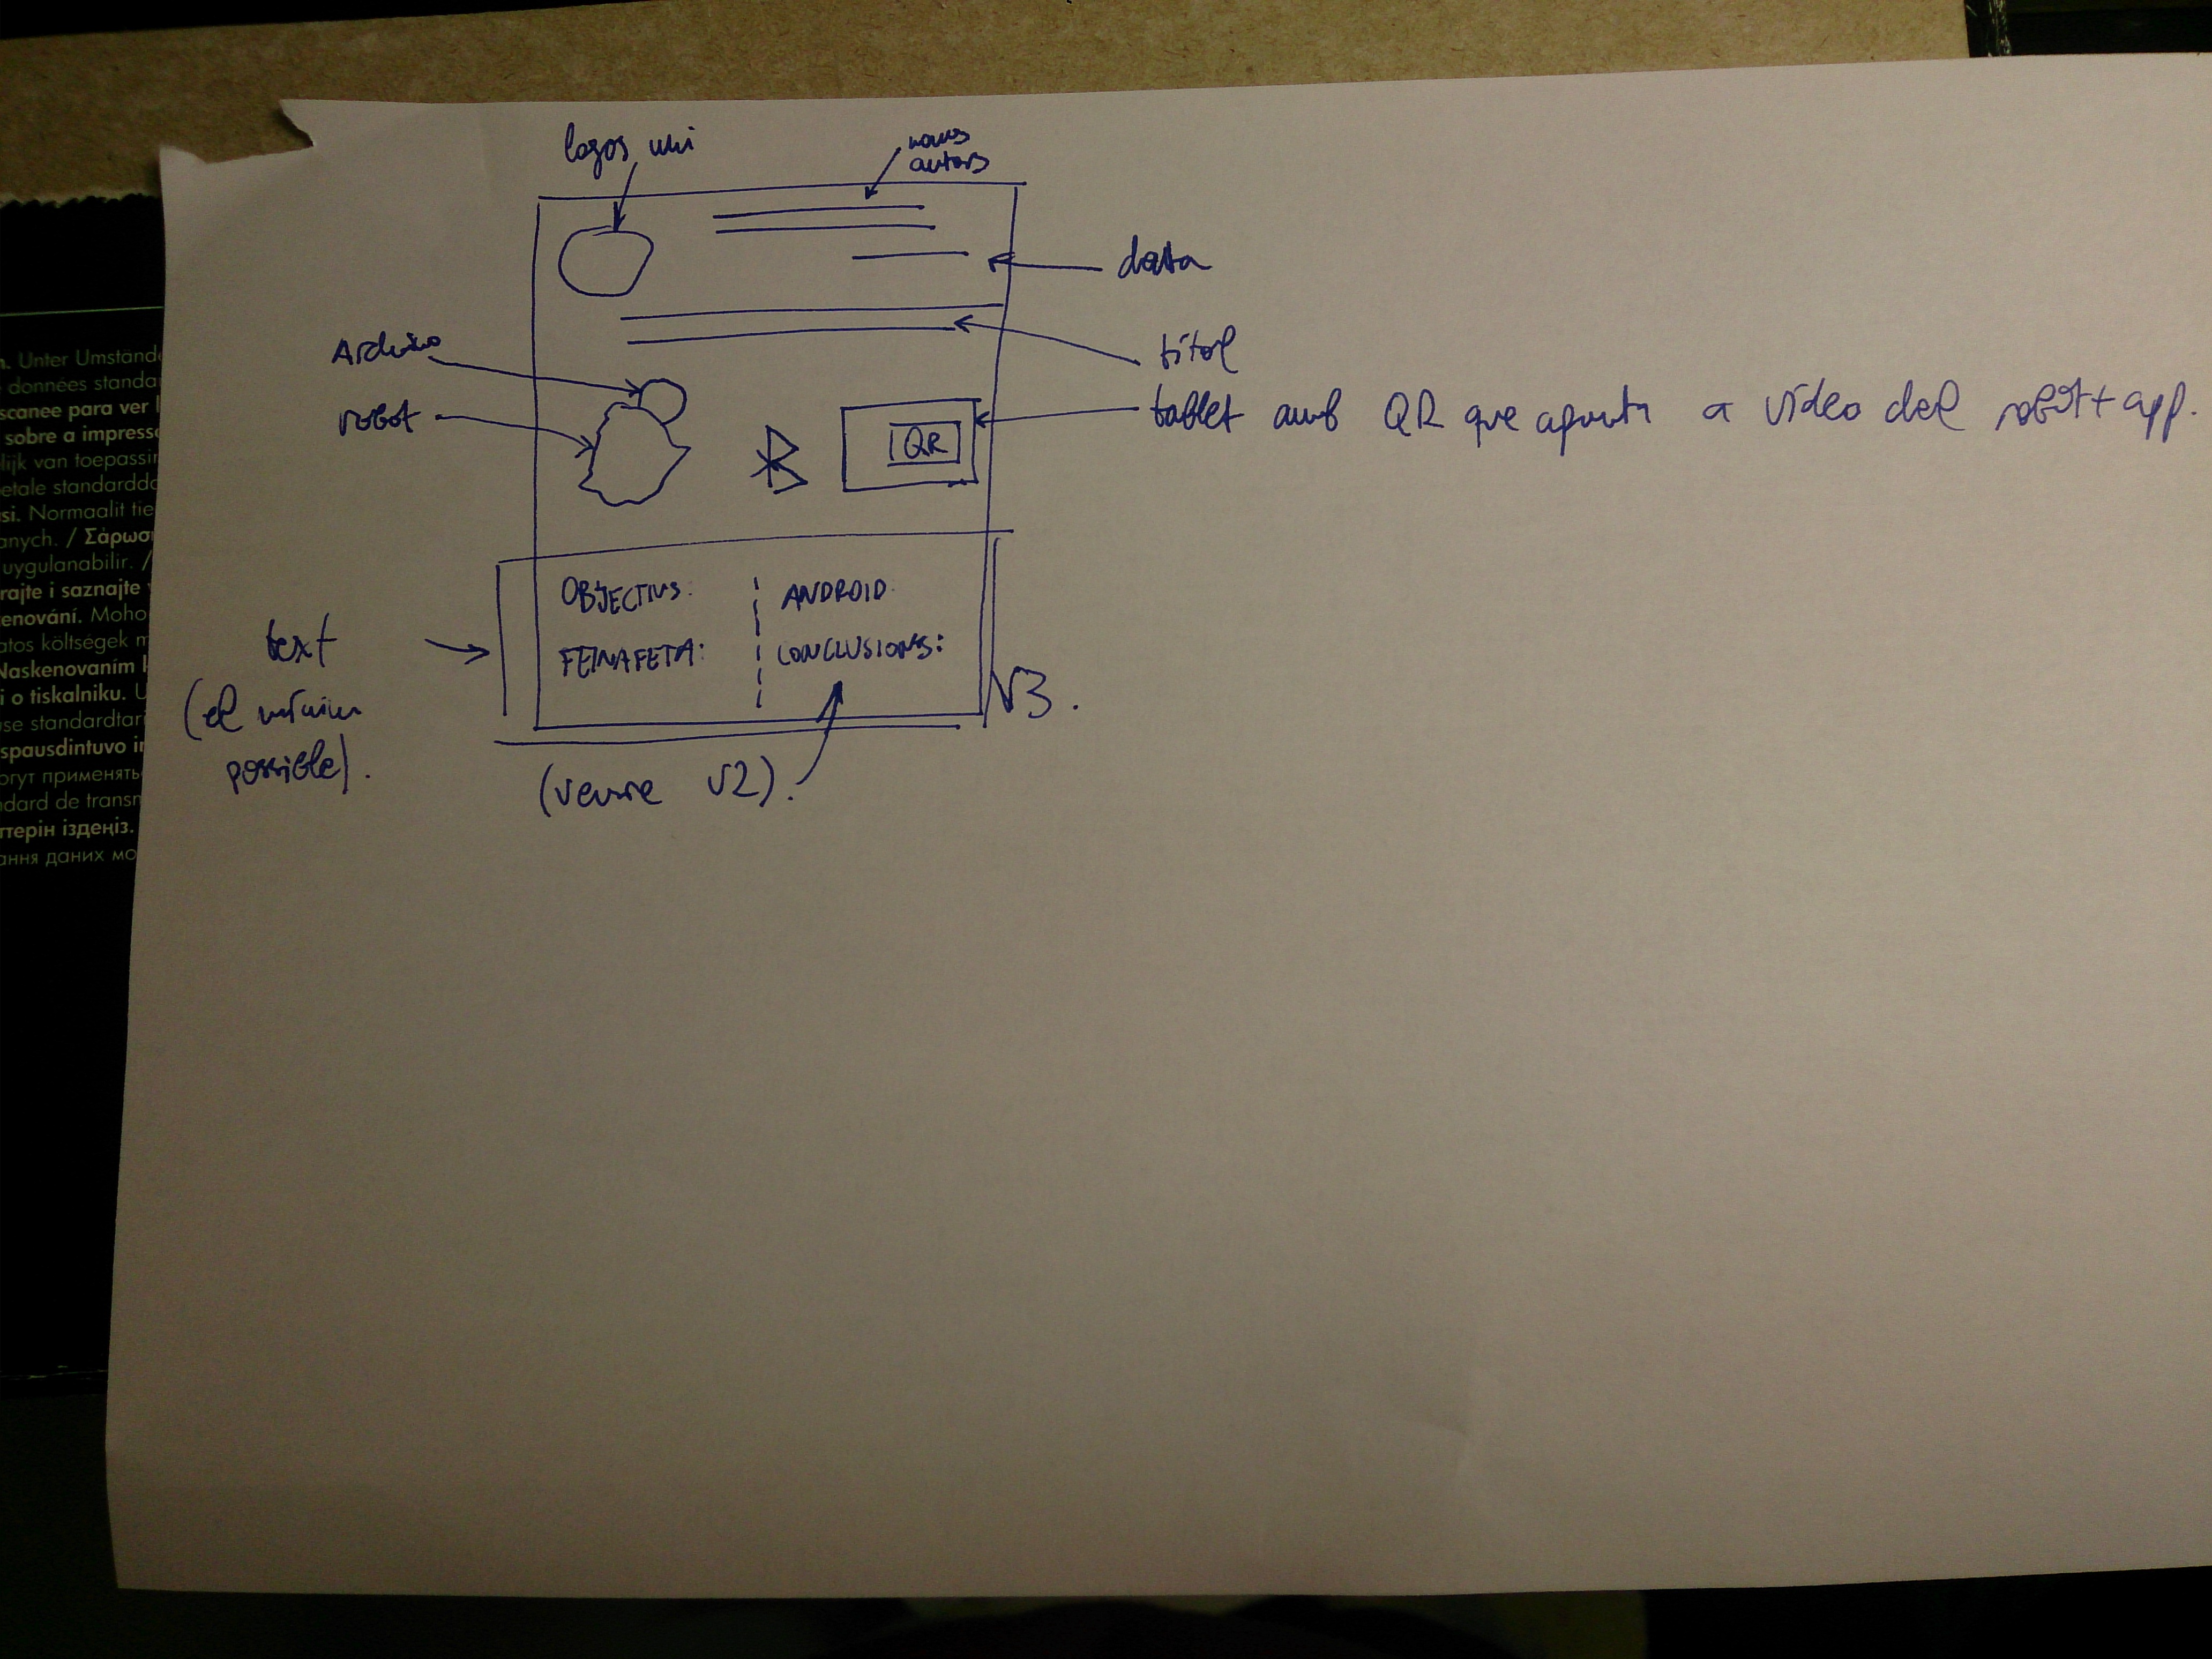 logos uni
noms
autors
data
Arduino
títol
robot
tablet amb QR que apunta a vídeo del robot + app.
QR
OBJECTIUS:
ANDROID
FEINA FETA:
CONCLUSIONS:
text
(el mínim
possible).
V3.
(veure v2).
n. Unter Umstände
données standa
scanee para ver l
sobre a impress
lijk van toepassin
etale standardda
si. Normaalit tie
anych. / Σάρωσ
uygulanabilir. /
rajte i saznajte
enování. Moho
atos költségek m
Naskenovaním
i o tiskalniku. U
se standardtari
spausdintuvo in
огут применять
dard de transm
ттерін іздеңіз.
ання даних мо